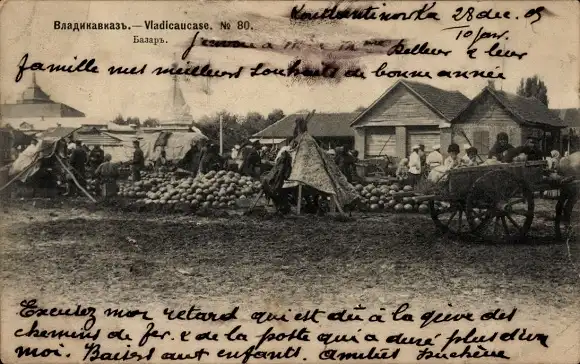 Владикавказъ.—Vladicaucase. № 80.
Базаръ.
Konstantinowka 28 dec. 05
10 janv.
J'envoie à M. et Mme Kelleur & leur
famille mes meilleurs souhaits de bonne année
Excusez mon retard qui est dû à la grève des
chemins de fer & de la poste qui a duré plus d'un
moi. Baisers aux enfants. Amitiés